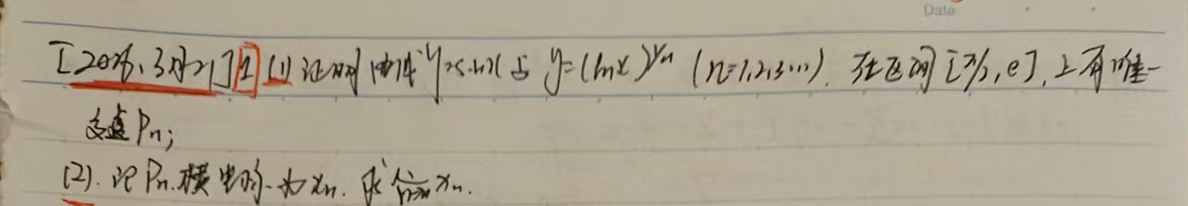 Date
[2026.3月21] 1 (1) 证明 曲线 y=sinx 与 y=(lnx)^{1/n} (n=1,2,3…). 在区间 [π/2, e]. 上有唯一
交点 Pn;
(2). 记 Pn. 横坐标为 xn. 求 lim_{n→∞} xn.